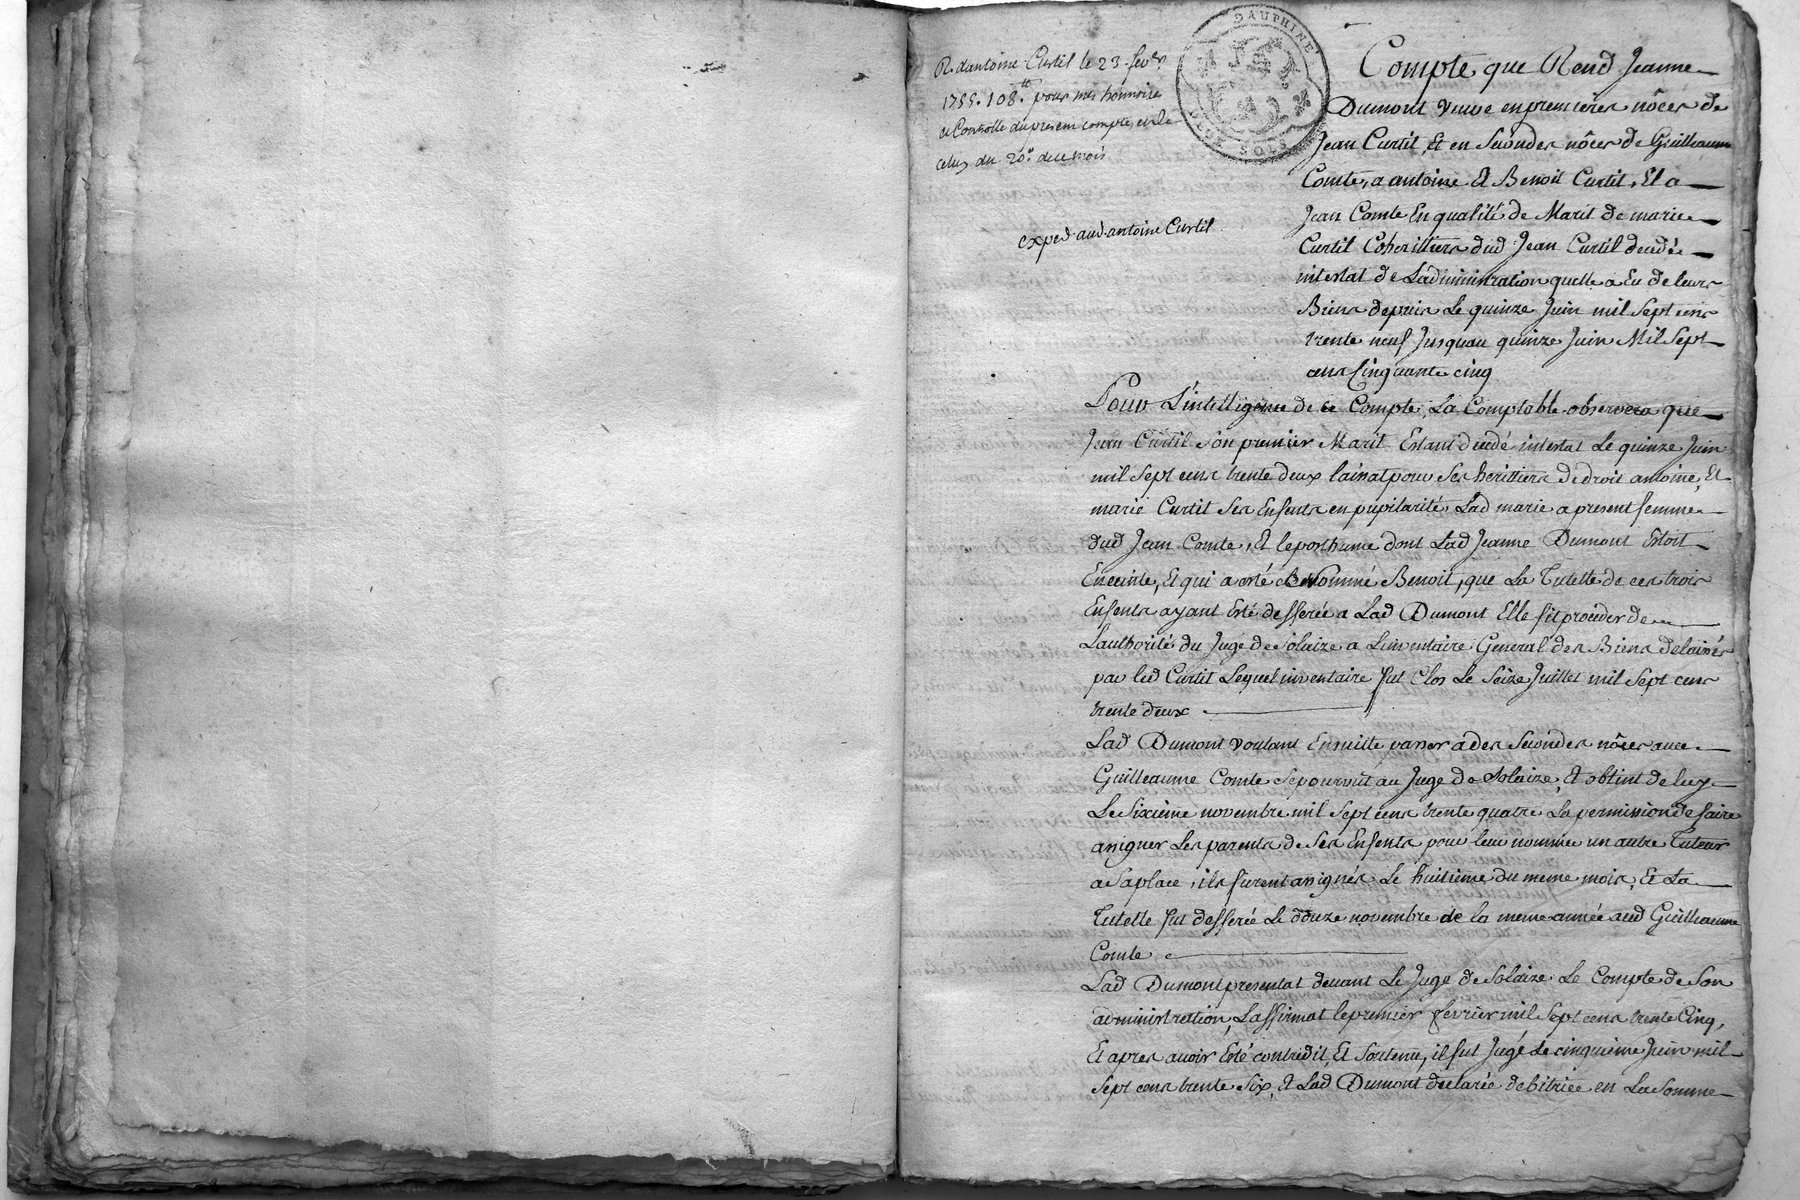 R. dantoine Curtil le 23 fevr
1755. 108tt pour mes honnoires
et Controlle du present compte, et de
celuy du 20e. du ce mois
exped aud antoine Curtil
DAUPHINÉ
DEUX SOLS
Compte que Rend Jeanne
Dumont veuve en premieres nôces de
Jean Curtil, Et en Secondes nôces de Guilleaume
Comte, a antoine Et Benoit Curtil, Et a
Jean Comte En qualité de Marit de marie
Curtil Coherittiers dud Jean Curtil decedé
intestat de Ladministration quelle a Eu de leurs
Biens depuis Le quinze Juin mil sept cens
trente neuf Jusquau quinze Juin Mil Sept
cens Cinquante cinq
Pour L'intelligence de ce Compte, La Comptable observera que
Jean Curtil son premier Marit Estant decedé intestat Le quinze Juin
mil sept cens trente deux laissat pour ses herittiers de droit antoine, Et
marie Curtil ses Enfents en pupilarité, Lad marie a present femme
dud Jean Comte, Et le posthume dont Lad Jeanne Dumont Estoit
Enceinte, Et qui a esté Nommé Benoit, que La Tutelle de ces trois
Enfents ayant Esté defferée a Lad Dumont Elle fit proceder de
Lauthorité du Juge de Solaize a Linventaire General des Biens delaissés
par led Curtil Lequel inventaire fut Clos Le seize Juillet mil sept cens
trente deux
Lad Dumont voulant Ensuitte passer a des Secondes nôces avec
Guilleaume Comte se pourvut au Juge de Solaize, Et obtint de luy
Le sixieme novembre mil Sept cens trente quatre La permission de faire
assigner Les parents de ses Enfents pour leur nommer un autre Tuteur
a Sa place, ils furent assignés Le huitieme du meme mois, Et La
Tutelle fut defferée Le douze novembre de la meme année aud Guilleaume
Comte
Lad Dumont presentat devant Le Juge de Solaize Le Compte de Son
administration, Laffirmat le premier fevrier mil Sept cens trente Cinq,
Et apres avoir Esté contredit, Et Soutenu, il fut Jugé Le cinquieme Juin mil
Sept cens trente Six, Et Lad Dumont declarée debitrice en La Somme